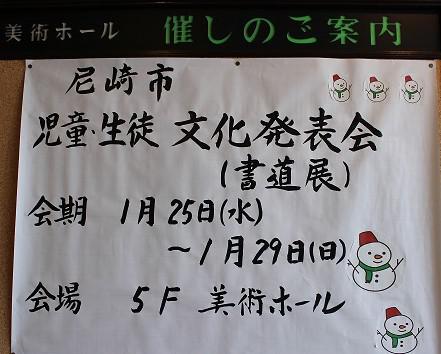 美術ホール 催しのご案内
尼崎市
児童・生徒 文化発表会
(書道展)
会期 1月25日(水)
～1月29日(日)
会場 5F 美術ホール